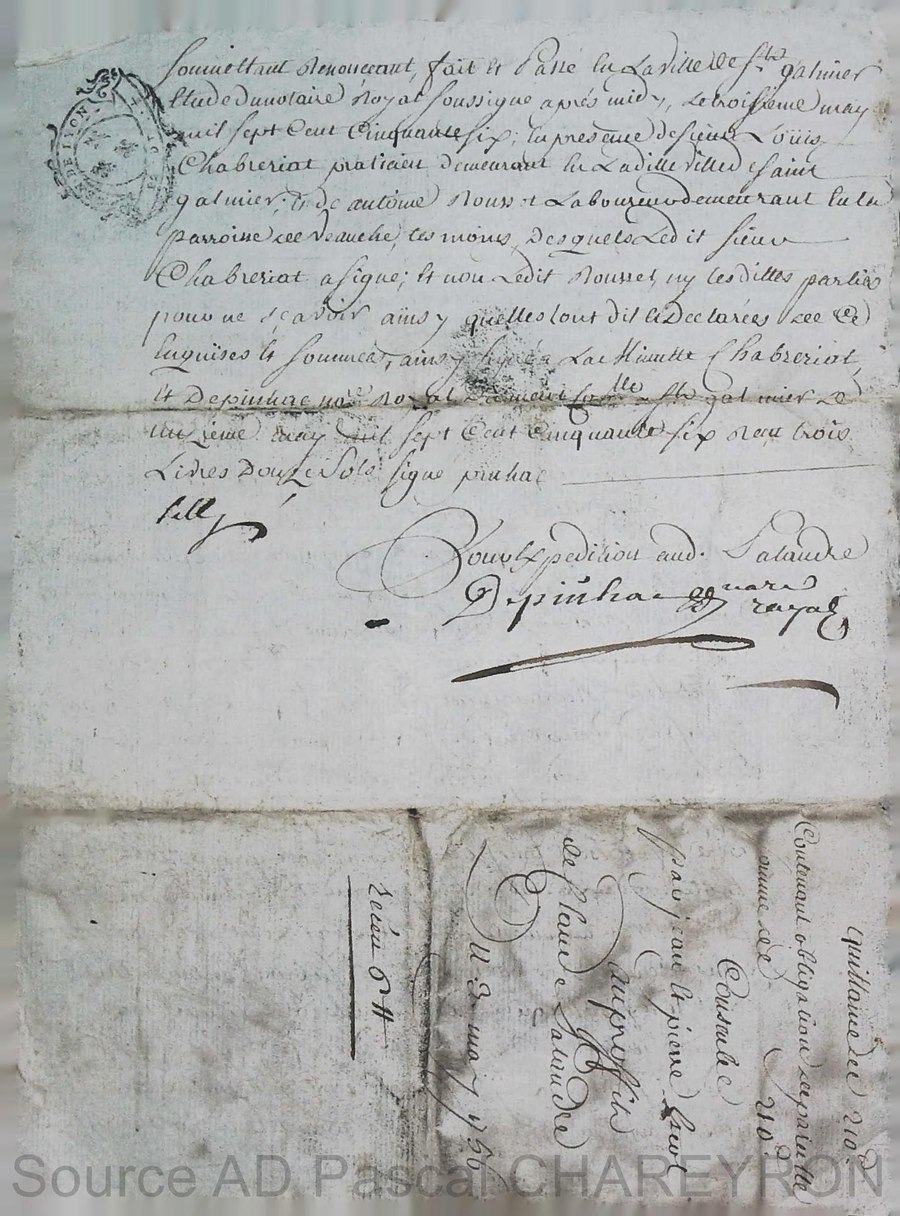 soumettant Renonceant, fait et Passé en La ville de St galmier
Etude du notaire Royal soussigné aprés midy, Le troisieme may
mil sept Cent Cinquante six; En presence de sieur Loüis
Chabreriat praticien demeurant En Laditte ville de Saint
galmier; Et de antoine Rousset Laboureur demeurant En la
parroisse de Veauche, tesmoins, Desquels Ledit sieur
Chabreriat a signé; Et non Ledit Rousset, ny les dittes parties
pour ne sçavoir ainsy quelles L'ont dit et Declarées de Ce
Enquises Et sommées, ainsy signé a La Minutte Chabreriat,
Et Depinhac nore Royal St galmier Le
may mil sept Cent Cinquante six Receu trois
Livres Douze Sols signé pinhac
Pour Expedition aud. Lalandre
Depinhac notaire royal
DE LYON
quittance de 210
Contenant obligation de pareille
somme de 210
Consentie
par jean Et pierre
au proffit
de Claude Lalandre
Du 3 may 1756
Source AD Pascal CHAREYRON